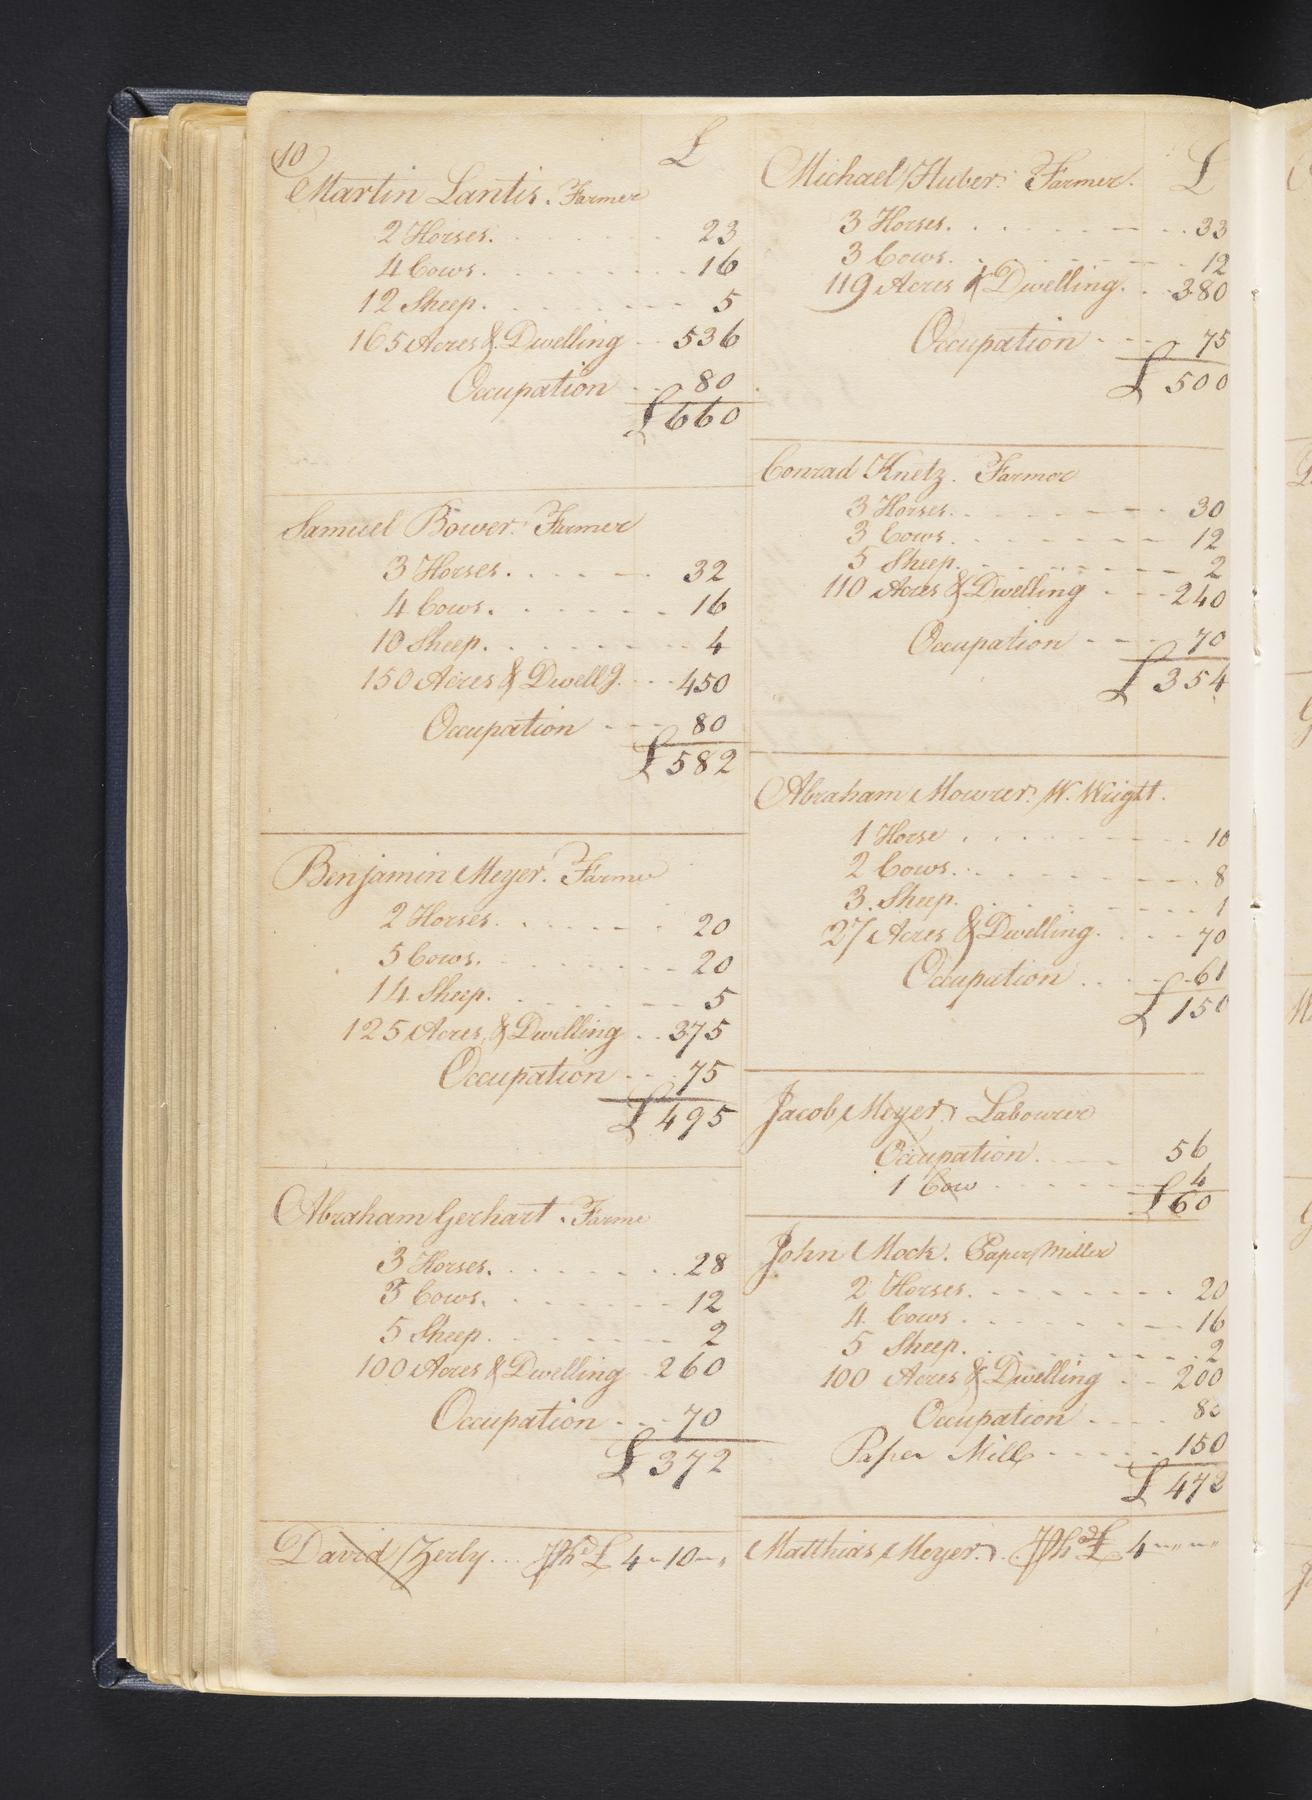 10
£
Martin Lantis. Farmer
2 Horses. 23
4 Cows. 16
12 Sheep. 5
165 Acres & Dwelling 536
Occupation 80
£ 660
Samuel Bower. Farmer
3 Horses. 32
4 Cows. 16
10 Sheep. 4
150 Acres & Dwellg. 450
Occupation 80
£ 582
Benjamin Meyer. Farmer
2 Horses. 20
5 Cows. 20
14 Sheep. 5
125 Acres & Dwelling 375
Occupation 75
£ 495
Abraham Gerhart. Farme
3 Horses. 28
3 Cows. 12
5 Sheep. 2
100 Acres & Dwelling 260
Occupation 70
£ 372
David Zerly £ 4 " 10 " "
Michael Huber. Farmer. £
3 Horses. 33
3 Cows. 12
119 Acres & Dwelling. 380
Occupation 75
£ 500
Conrad Knetz. Farmer
3 Horses. 30
3 Cows. 12
5 Sheep. 2
110 Acres & Dwelling 240
Occupation 70
£ 354
Abraham Mourer. W. Wright.
1 Horse 10
2 Cows. 8
3. Sheep. 1
27 Acres & Dwelling. 70
Occupation 61
£ 150
Jacob Meyer. Labourer
Occupation. 56
1 Cow 4
£ 60
John Mock. Paper Miller
2 Horses. 20
4 Cows 16
5 Sheep. 2
100 Acres & Dwelling 200
Occupation 80
Paper Mill 150
£ 472
Matthias Meyer. £ 4 " " " "